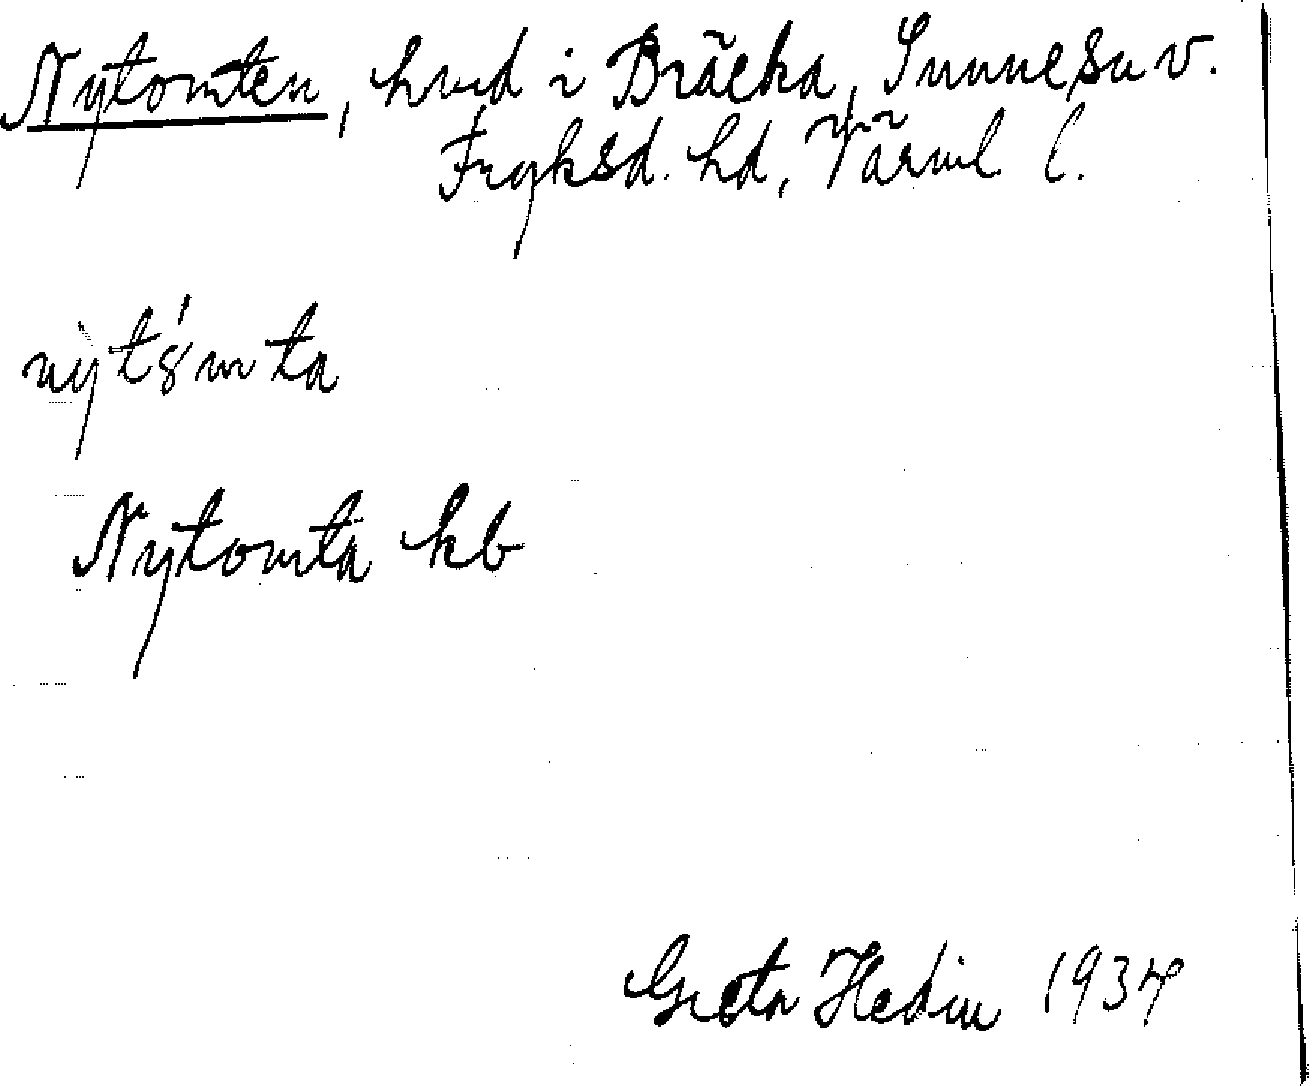 Nytomten, hmd i Bräcka, Sunne sn v.
Fryksd. hd, Värml l.
nỳt8́mta
Nytomta kb
Greta Hedin 1937